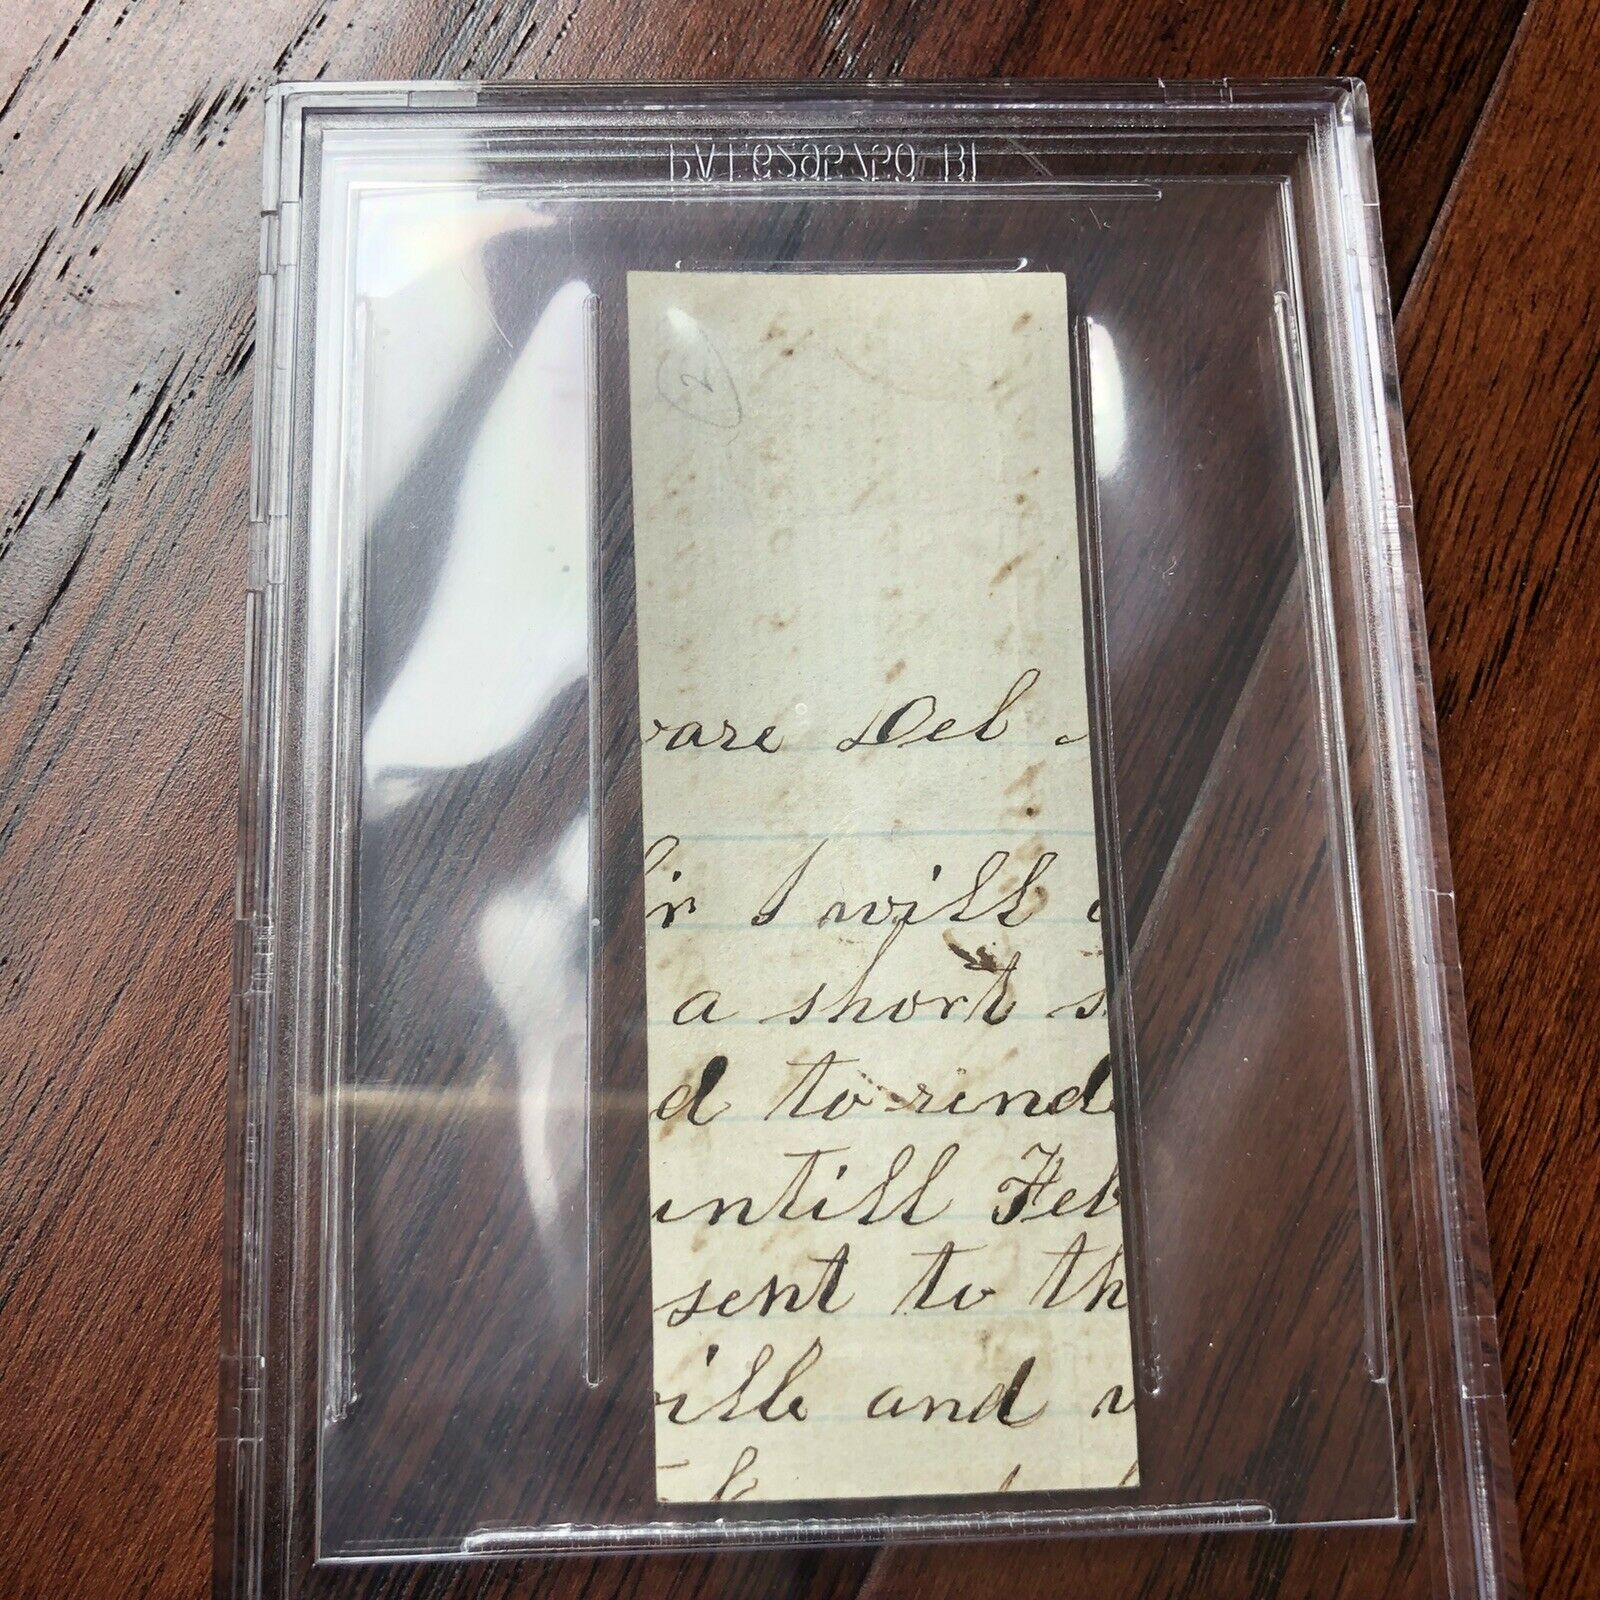 PAT.6295750 B1
2
ware Del
Sir I will
a short s
d to rind
untill Feb
sent to th
ille and